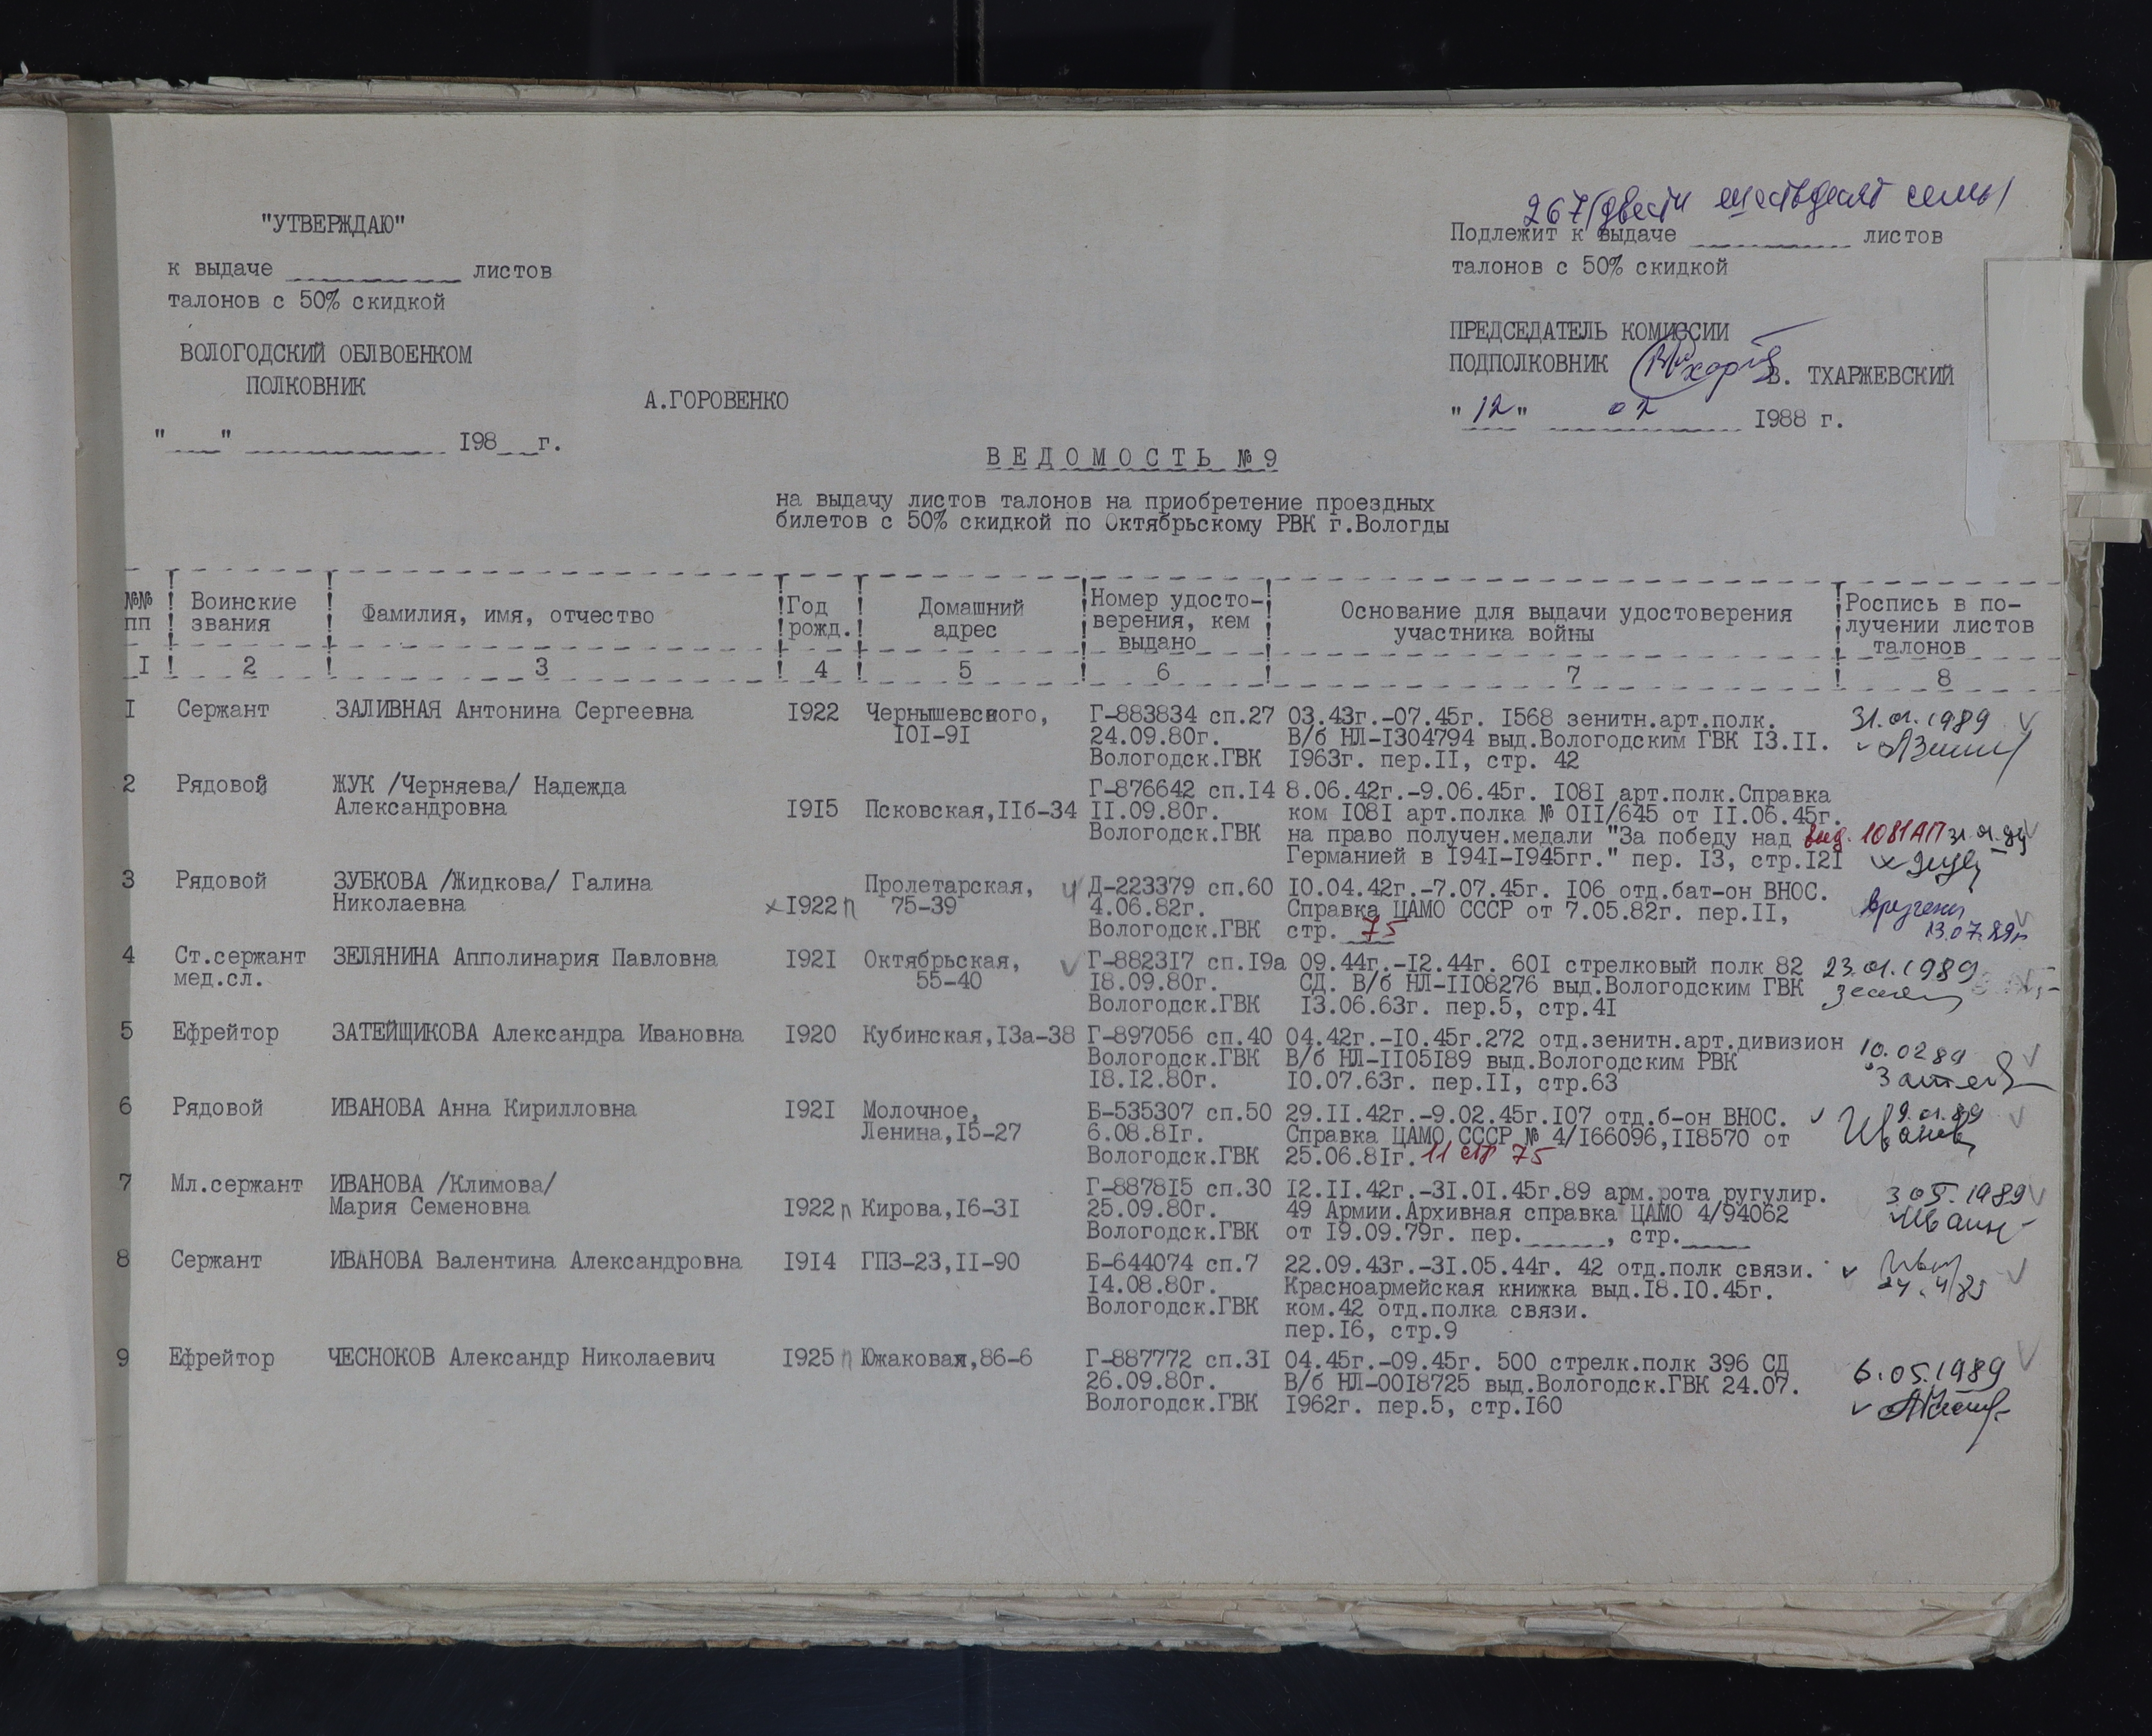 "УТВЕРЖДАЮ"
к выдаче _________ листов
талонов с 50% скидкой
ВОЛОГОДСКИЙ ОБЛВОЕНКОМ
ПОЛКОВНИК
А.ГОРОВЕНКО
"___" __________ 198__г.
267/двести шестьдесят семь/
Подлежит к выдаче ________ листов
талонов с 50% скидкой
ПРЕДСЕДАТЕЛЬ КОМИССИИ
ПОДПОЛКОВНИК В. ТХАРЖЕВСКИЙ
"12" 02 1988 г.
ВЕДОМОСТЬ №9
на выдачу листов талонов на приобретение проездных
билетов с 50% скидкой по Октябрьскому РВК г.Вологды
№№ пп ! Воинские звания ! Фамилия, имя, отчество ! Год рожд. ! Домашний адрес ! Номер удосто-верения, кем выдано ! Основание для выдачи удостоверения участника войны ! Роспись в по-лучении листов талонов
I ! 2 ! 3 ! 4 ! 5 ! 6 ! 7 ! 8
I Сержант ЗАЛИВНАЯ Антонина Сергеевна I922 Чернышевского, Г-883834 сп.27 03.43г.-07.45г. I568 зенитн.арт.полк. 31.01.1989
I0I-9I 24.09.80г. В/б НЛ-I304794 выд.Вологодским ГВК I3.II.
Вологодск.ГВК I963г. пер.II, стр. 42
2 Рядовой ЖУК /Черняева/ Надежда Г-876642 сп.I4 8.06.42г.-9.06.45г. I08I арт.полк.Справка
Александровна I9I5 Псковская,IIб-34 II.09.80г. ком I08I арт.полка № 0II/645 от II.06.45г.
Вологодск.ГВК на право получен.медали "За победу над 1081АП 31.01.89
Германией в I94I-I945гг." пер. I3, стр.I2I
3 Рядовой ЗУБКОВА /Жидкова/ Галина Пролетарская, Д-223379 сп.60 I0.04.42г.-7.07.45г. I06 отд.бат-он ВНОС.
Николаевна I922 п 75-39 4.06.82г. Справка ЦАМО СССР от 7.05.82г. пер.II, вручены
Вологодск.ГВК стр. 75 13.07.89г
4 Ст.сержант ЗЕЛЯНИНА Апполинария Павловна I92I Октябрьская, Г-8823I7 сп.I9а 09.44г.-I2.44г. 60I стрелковый полк 82 23.01.1989
мед.сл. 55-40 I8.09.80г. СД. В/б НЛ-II08276 выд.Вологодским ГВК
Вологодск.ГВК I3.06.63г. пер.5, стр.4I
5 Ефрейтор ЗАТЕЙЩИКОВА Александра Ивановна I920 Кубинская,I3а-38 Г-897056 сп.40 04.42г.-I0.45г.272 отд.зенитн.арт.дивизион 10.02 89
Вологодск.ГВК В/б НЛ-II05I89 выд.Вологодским РВК
I8.I2.80г. I0.07.63г. пер.II, стр.63
6 Рядовой ИВАНОВА Анна Кирилловна I92I Молочное, Б-535307 сп.50 29.II.42г.-9.02.45г.I07 отд.б-он ВНОС. 9.01.89
Ленина,I5-27 6.08.8Iг. Справка ЦАМО СССР № 4/I66096,II8570 от
Вологодск.ГВК 25.06.8Iг. 11 стр 75
7 Мл.сержант ИВАНОВА /Климова/ Г-8878I5 сп.30 I2.II.42г.-3I.0I.45г.89 арм.рота ругулир. 3 05. 1989
Мария Семеновна I922 п Кирова,I6-3I 25.09.80г. 49 Армии.Архивная справка ЦАМО 4/94062
Вологодск.ГВК от I9.09.79г. пер._____, стр.____
8 Сержант ИВАНОВА Валентина Александровна I9I4 ГПЗ-23,II-90 Б-644074 сп.7 22.09.43г.-3I.05.44г. 42 отд.полк связи.
I4.08.80г. Красноармейская книжка выд.I8.I0.45г.
Вологодск.ГВК ком.42 отд.полка связи.
пер.I6, стр.9
9 Ефрейтор ЧЕСНОКОВ Александр Николаевич I925 п Южаковая,86-6 Г-887772 сп.3I 04.45г.-09.45г. 500 стрелк.полк 396 СД 6.05.1989
26.09.80г. В/б НЛ-00I8725 выд.Вологодск.ГВК 24.07.
Вологодск.ГВК I962г. пер.5, стр.I60